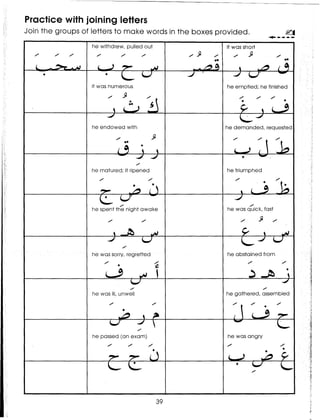 Practice with joining letters
Join the groups of letters to make words in the boxes provided.
he withdrew, pulled out
it was short
سَ حَ بَ
سحب
قَ صُ رَ
قصر
it was numerous
he emptied; he finished
كَ ثُ رَ
فَ رَ غَ
he endowed with
he demanded, requested
رَ زَ قَ
طَ لَ بَ
he matured; it ripened
he triumphed
نَ ضِ جَ
ظَ فِ رَ
he spent the night awake
he was quick, fast
سَ هِ رَ
سَ رُ عَ
he was sorry, regretted
he abstained from
أَ سِ فَ
زَ هِ دَ
he was ill, unwell
he gathered, assembled
مَ رِ ضَ
حَ فَ لَ
he passed (an exam)
he was angry
نَ جَ حَ
غَ ضِ بَ
39